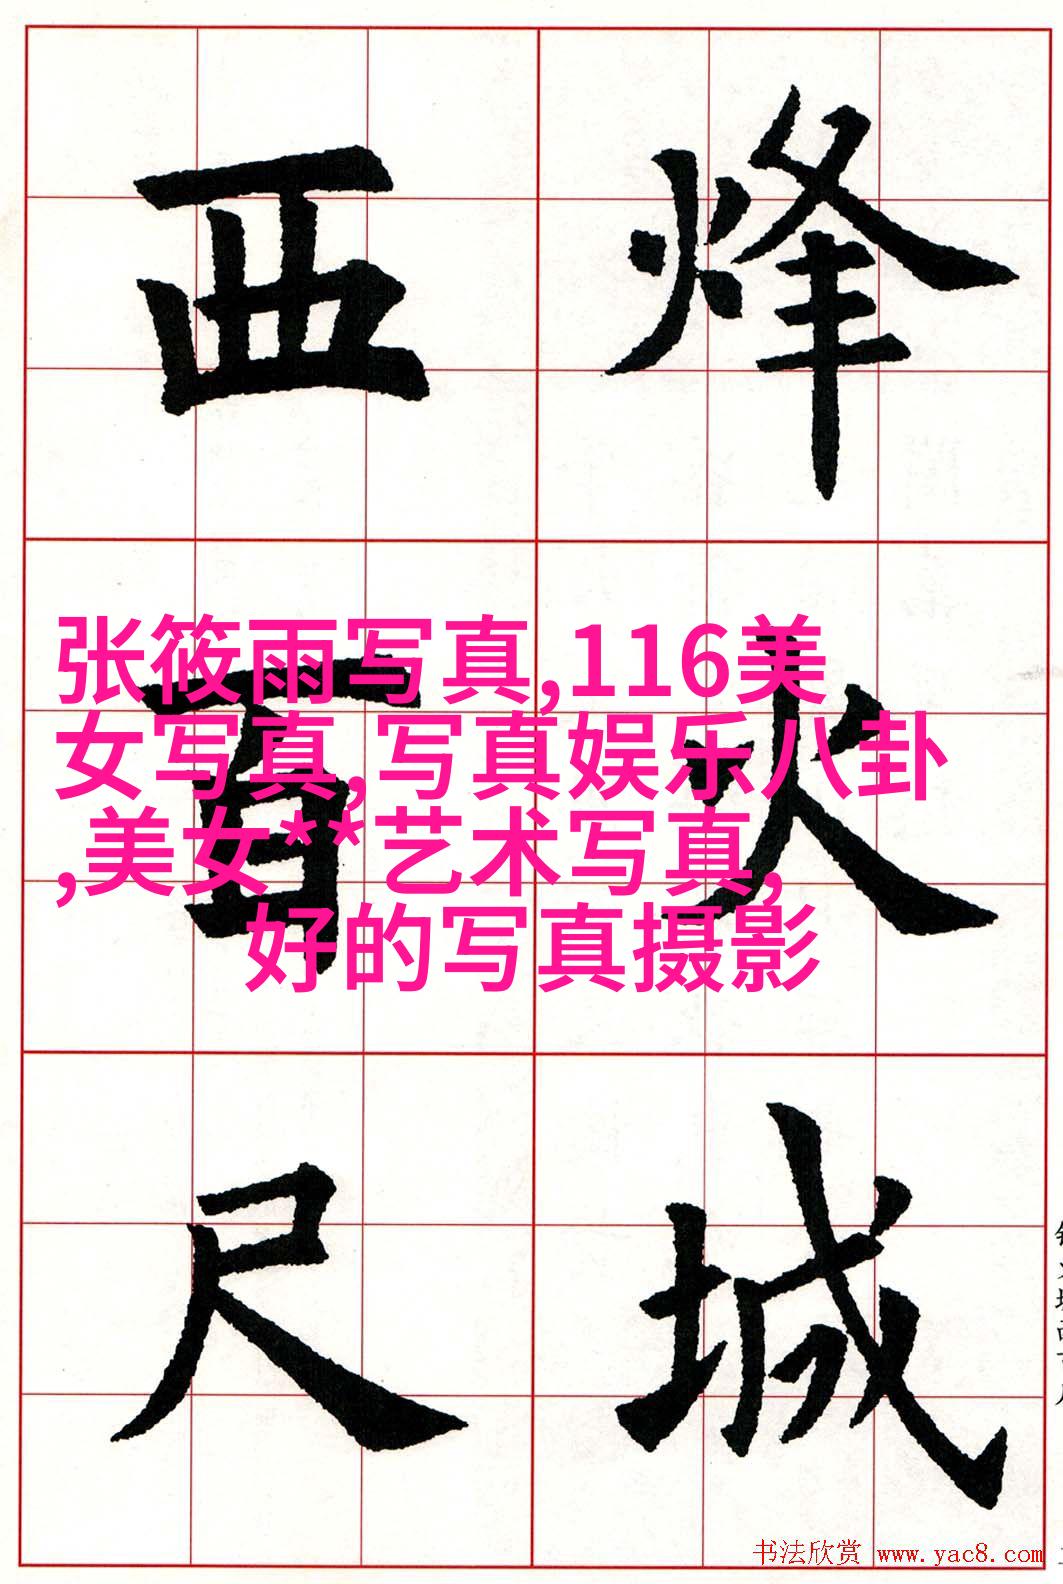 烽火城
西百尺
张筱雨写真,116美
女写真,写真娱乐八卦
,美女**艺术写真,
好的写真摄影
书法欣赏 www.yac8.com